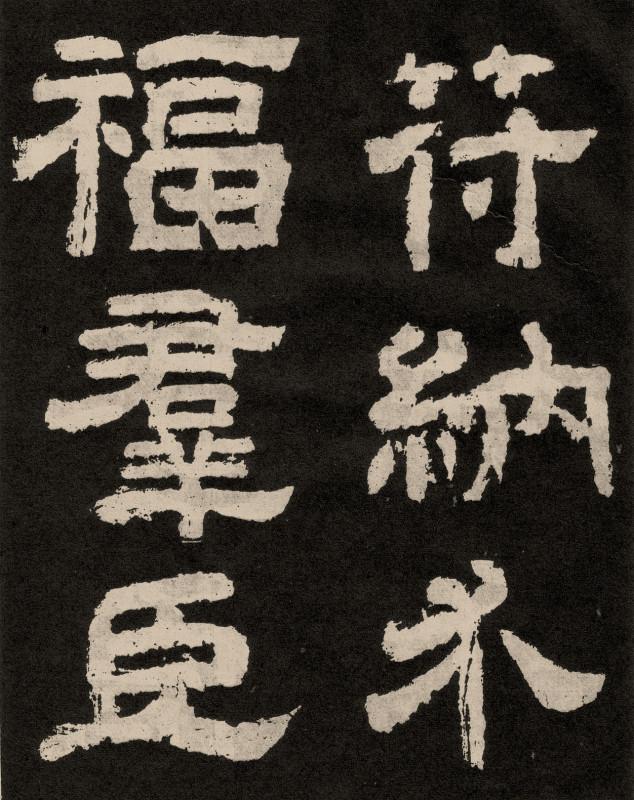 符納介
福羣臣